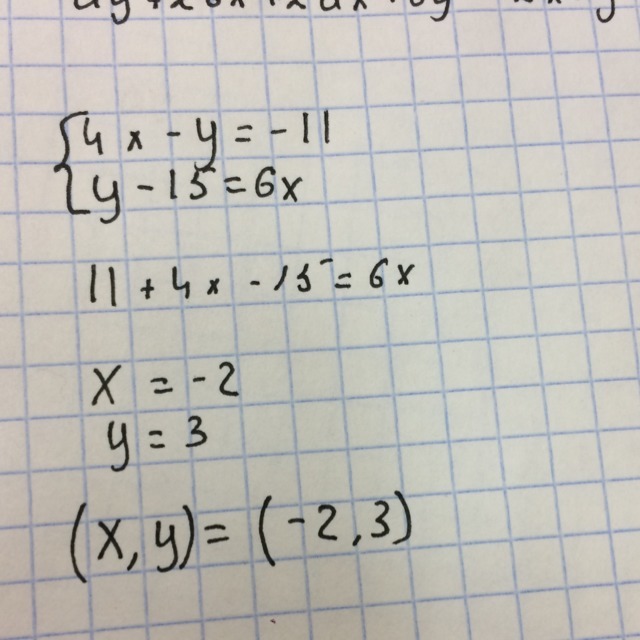 {4x - y = -11
{y - 15 = 6x
11 + 4x - 15 = 6x
x = -2
y = 3
(x, y) = (-2, 3)